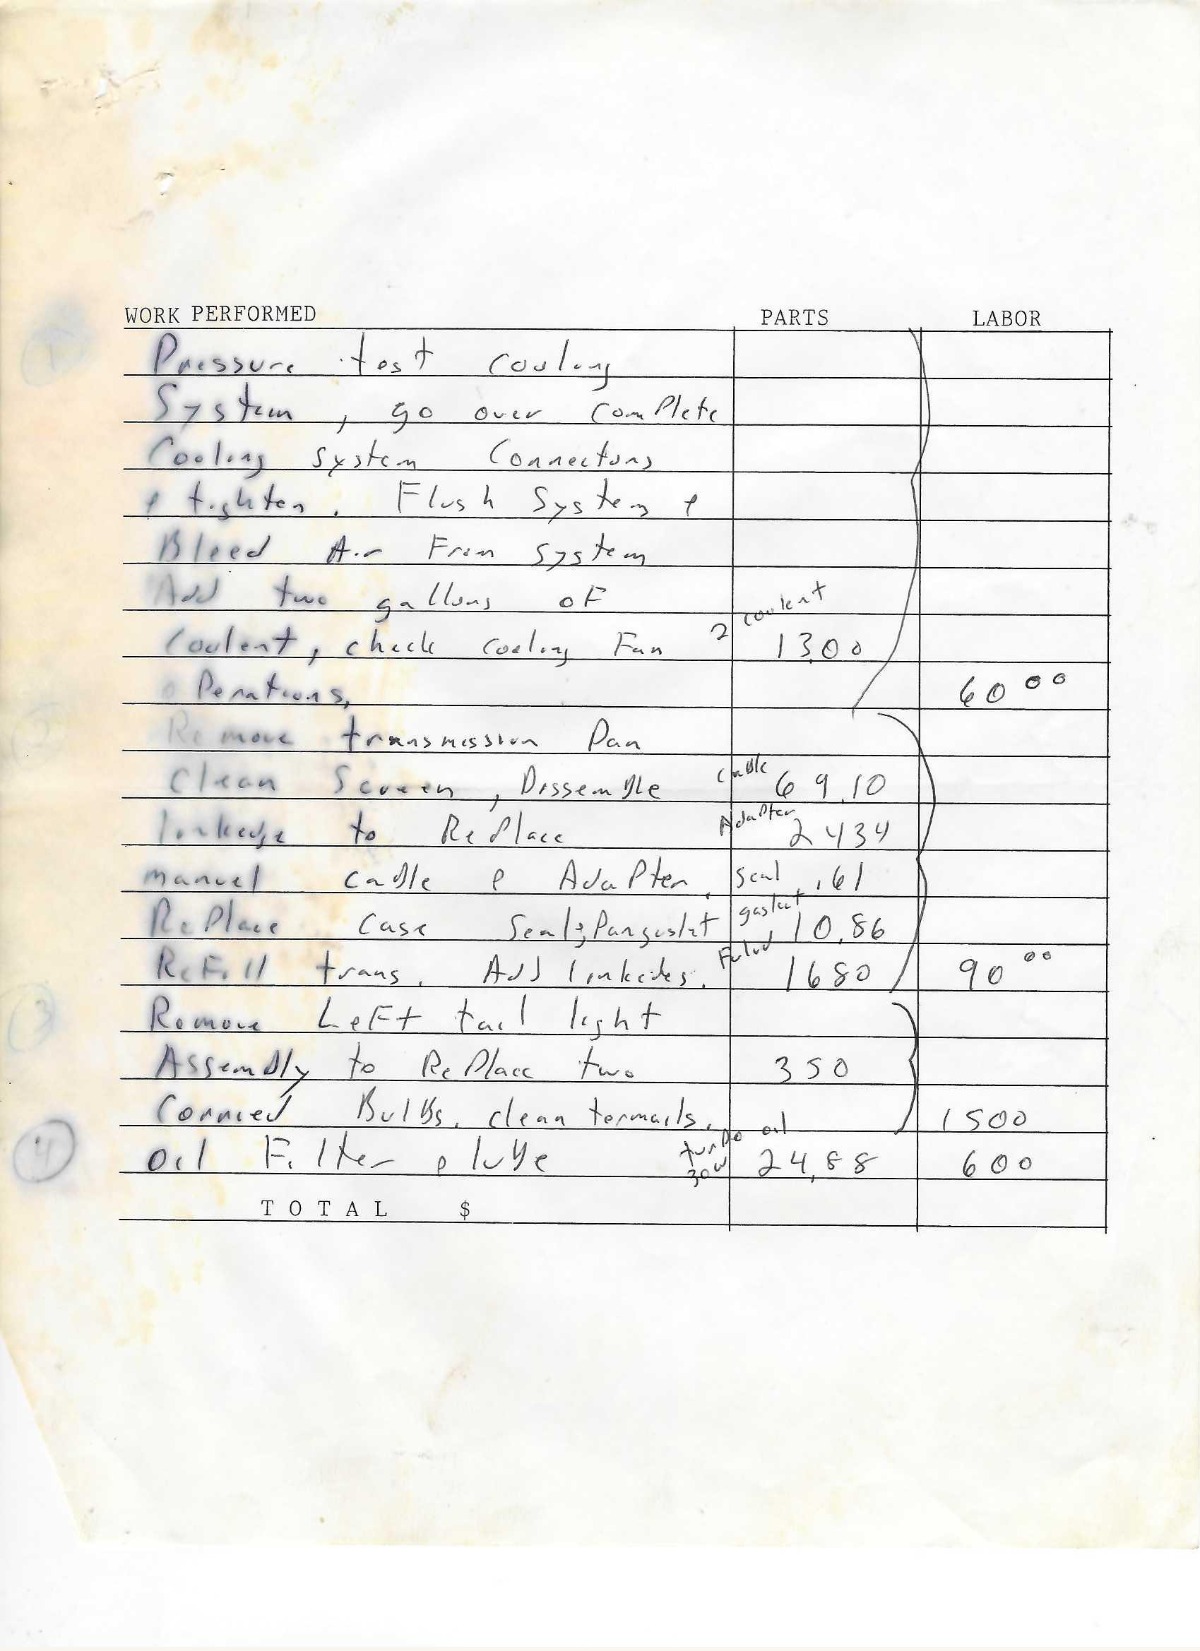 WORK PERFORMED PARTS LABOR
Pressure test cooling
System, go over complete
Cooling system Connectors
& tighten. Flush System &
Bleed Air From system
Add two gallons of coolent
Coolent, check cooling Fan 2 13.00
operations, 60 00
Remove transmission Pan
Clean Screen, Dissemble cable 69.10
linkedge to Replace Adapter 2434
manuel cable & Adapter. seal .61
Replace case Seal & Pangasket gasket 10.86
Refill trans. Add linkedes. 1680 90 00
3 Remove Left tail light
Assembly to Replace two 350
Corroied Bulbs. clean termails. 1500
4 oil Filter & lube turbo oil 30W 24.88 600
TOTAL $